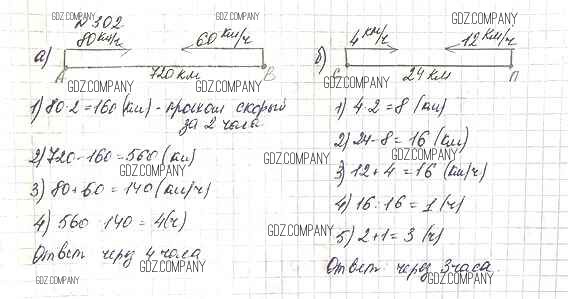 №302
GDZ.COMPANY
GDZ.COMPANY
а) 80 км/ч 60 км/ч
A 720 км B
GDZ.COMPANY
GDZ.COMPANY
1) 80·2=160 (км) - проехал скорый
за 2 часа
2) 720-160=560 (км)
GDZ.COMPANY
3) 80+60=140 (км/ч)
4) 560:140=4(ч)
Ответ через 4 часа
GDZ.COMPANY
GDZ.COMPANY
б) 4 км/ч 12 км/ч
С 24 км П
GDZ.COMPANY
1) 4·2=8 (км)
2) 24-8=16 (км)
GDZ.COMPANY
GDZ.COMPANY
3) 12+4=16 (км/ч)
4) 16:16=1 (ч)
GDZ.COMPANY
5) 2+1=3 (ч)
Ответ: через 3 часа.
GDZ.COMPANY